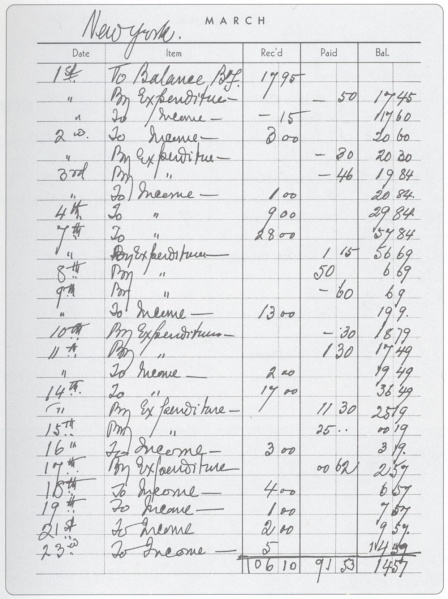 MARCH
New York.
Date Item Rec'd Paid Bal.
1st To Balance B/f. 17 95
" By Expenditure — — 50 17 45
" To Income — — 15 17 60
2nd. To Income — 3 00 20 60
" By Expenditure — — 30 20 30
3rd By " — 46 19 84
" To Income — 1 00 20 84
4th To " 9 00 29 84
7th To " 28 00 57 84
" By Expenditure — 1 15 56 69
8th By " 50 6 69
9th By " — 60 6 9
" To Income — 13 00 19 9.
10th By Expenditure — — 30 18 79
11th By " 1 30 17 49
" To Income — 2 00 19 49
14th To " 17 00 36 49
" By Expenditure — 11 30 25 19
15th By " 25 .. 00 19
16 " To Income — 3 00 3 19.
17th By Expenditure 00 62 2 57
18th To Income — 4 00 6 57
19th To Income — 1 00 7 57
21st To Income 2 00 9 57
23rd To Income — 5
106 10 91 53 14 57